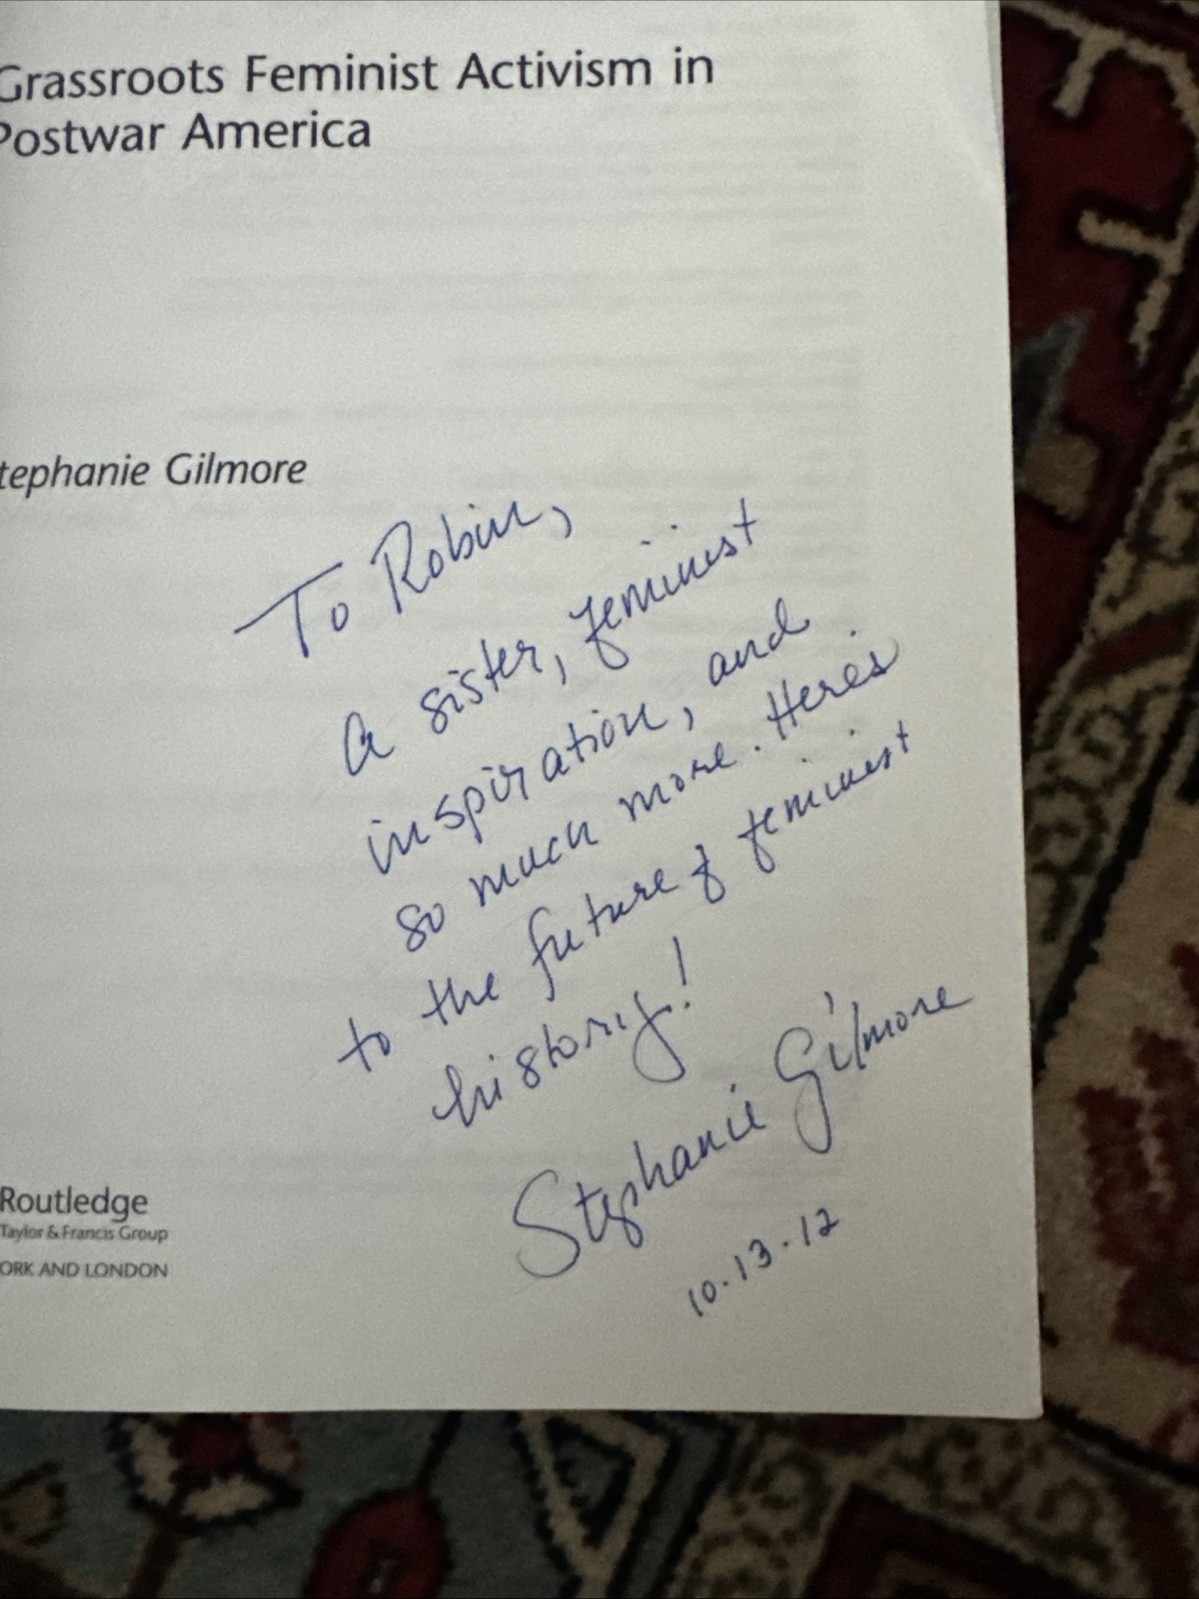 Grassroots Feminist Activism in
Postwar America
tephanie Gilmore
To Robin,
a sister, feminist
inspiration, and
so much more. Here's
to the future of feminist
history!
Stephanie Gilmore
10.13.12
Routledge
Taylor & Francis Group
ORK AND LONDON